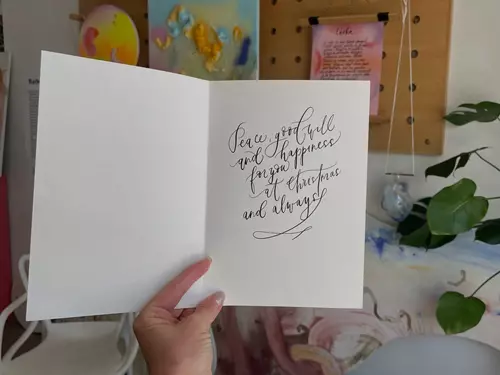 Peace, good will
and happiness
for you
at Christmas
and always